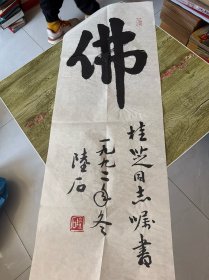 佛
桂芝同志嘱书
一九九二年冬
陆石